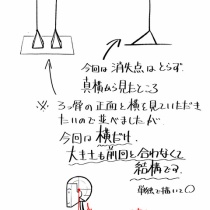 今回は消失点はとらず
真横から見たところ
※ 3つ脚の正面と横を見ていただき
たいので並べましたが
今回は横だけ
大きさも前回と合わなくて
結構です。
単独で描いて〇